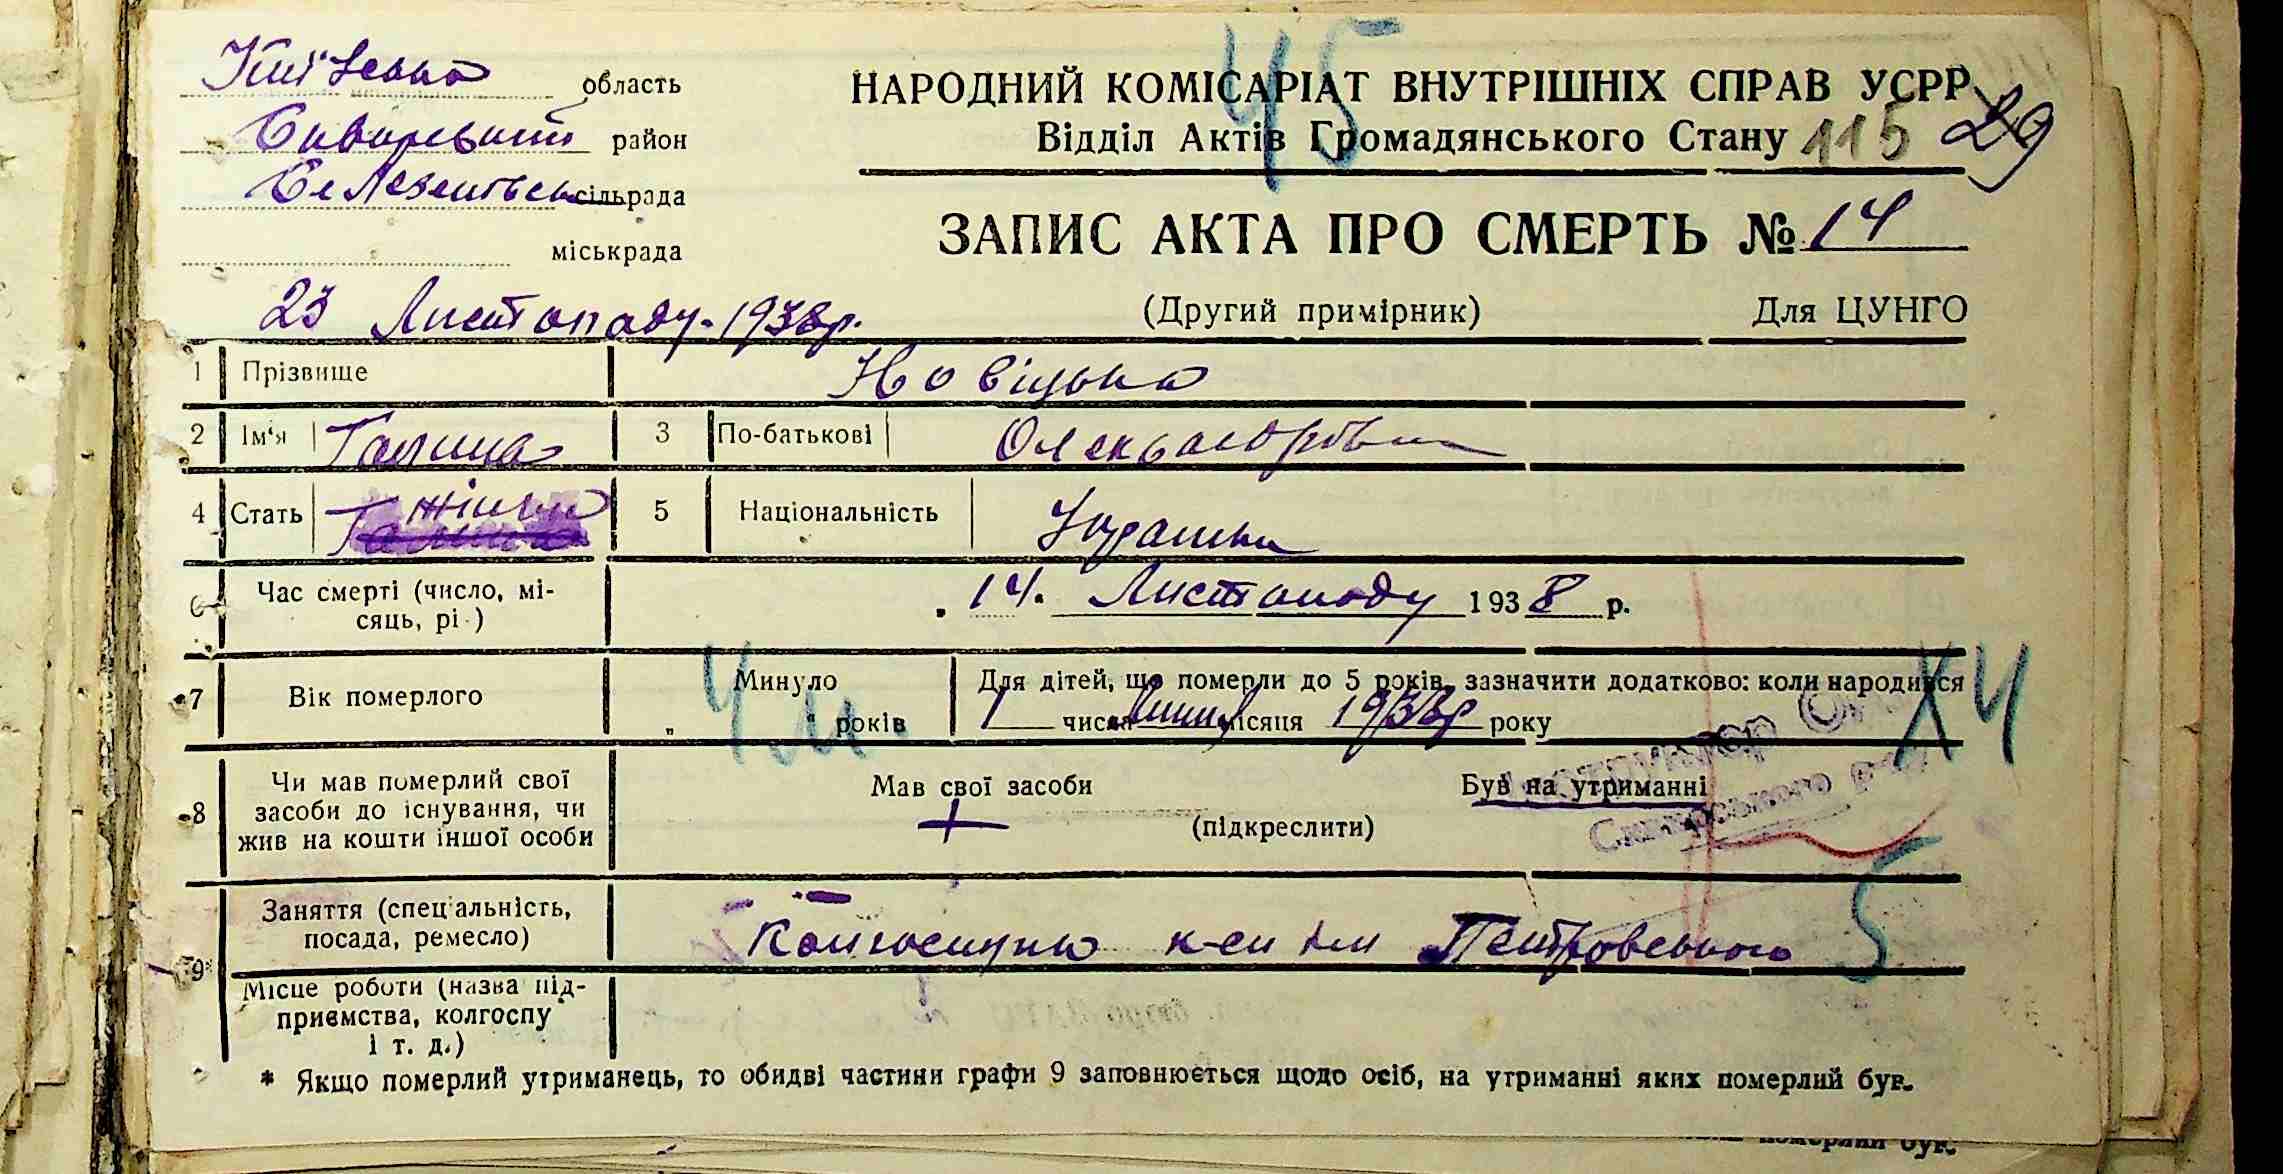 Київська область
НАРОДНИЙ КОМІСАРІАТ ВНУТРІШНІХ СПРАВ УСРР
45
29
Сквирський район
Відділ Актів Громадянського Стану 115
сільрада
ЗАПИС АКТА ПРО СМЕРТЬ № 14
міськрада
23 Листопаду 1938р.
(Другий примірник) Для ЦУНГО
1 Прізвище Новіцька
2 Ім'я Галина 3 По-батькові Олександрівна
4 Стать жінка 5 Національність Українка
Галина
6 Час смерті (число, мі-
сяць, рі ) 14. Листопаду 1938 р.
7 Вік померлого Минуло років 4 м.
Для дітей, що померли до 5 років, зазначити додатково: коли народився
1 числа місяця 1938р року
Х4
8 Чи мав померлий свої
засоби до існування, чи
жив на кошти іншої особи
Мав свої засоби Був на утриманні
(підкреслити)
Інструктор
Сквирського
9* Заняття (спеціальність,
посада, ремесло) Колгоспник к-сп ім Петровського 5
Місце роботи (назва під-
приємства, колгоспу
і т. д.)
* Якщо померлий утриманець, то обидві частини графи 9 заповнюється щодо осіб, на утриманні яких померлий був.
померлий був.